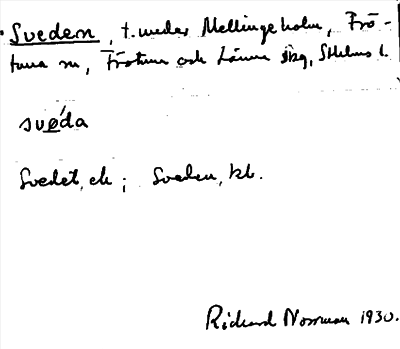 Svedern, t. under Mellingeholm, Frö-
tuna sn, Frötuna och Länna skg, Sthlms l.
svèda
Svedet, ek; Sveden, kb.
Richard Norrman 1930.